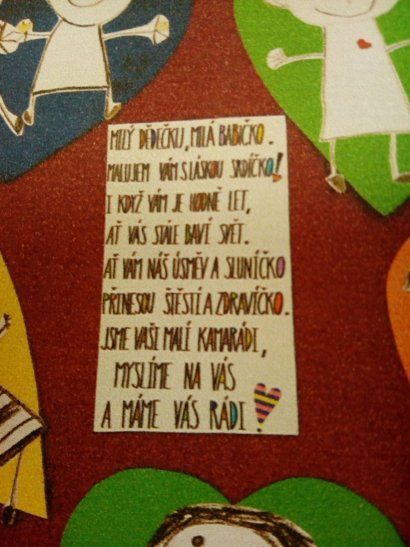 MILÝ DĚDEČKU, MILÁ BABIČKO.
MALUJEM VÁM S LÁSKOU SRDÍČKO!
I KDYŽ VÁM JE HODNĚ LET,
AŤ VÁS STÁLE BAVÍ SVĚT.
AŤ VÁM NÁŠ ÚSMĚV A SLUNÍČKO
PŘINESOU ŠTĚSTÍ A ZDRAVÍČKO.
JSME VAŠI MALÍ KAMARÁDI,
MYSLÍME NA VÁS
A MÁME VÁS RÁDI!